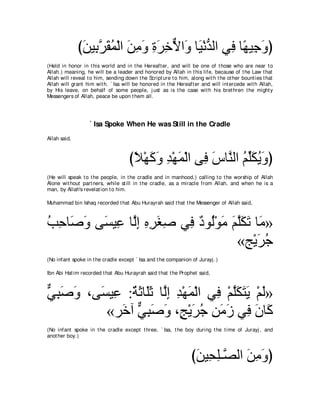 (وَجِيهًا فِي الدُّنْيَا وَالْأَخِرَةِ وَمِنَ الْمُقَرَّبِينَ)
(Held in honor in this world and in the Hereafter, and will be one of those who are near to
Allah.) meaning, he will be a leader and honored by Allah in this life, because of the Law that
Allah will reveal to him, sending down the Scripture to him, along with the other bounties that
Allah will grant him with. `Isa will be honored in the Hereafter and will intercede with Allah,
by His leave, on behalf of some people, just as is the case with his brethren the mighty
Messengers of Allah, peace be upon them all.
`Isa Spoke When He was Still in the Cradle
Allah said,
(وَيُكَلِّمُ النَّاسَ فِى الْمَهْدِ وَكَهْلاً)
(He will speak to the people, in the cradle and in manhood,) calling to the worship of Allah
Alone without partners, while still in the cradle, as a miracle from Allah, and when he is a
man, by Allah's revelation to him.
Muhammad bin Ishaq recorded that Abu Hurayrah said that the Messenger of Allah said,
«مَا تَكَلَّمَ مَوْلُودٌ فِي صِغَرِهِ إِلَّا عِيسَى وَصَاحِبُ
جُرَيْج»
(No infant spoke in the cradle except `Isa and the companion of Jurayj.)
Ibn Abi Hatim recorded that Abu Hurayrah said that the Prophet said,
«لَمْ يَتَكَلَّمْ فِي الْمَهْدِ إِلَّا ثَلَاثَةٌ: عِيسَى، وَصَبِيٌّ
كَانَ فِي زَمَنِ جُرَيْجٍ، وَصَبِيٌّ آخَر»
(No infant spoke in the cradle except three, `Isa, the boy during the time of Jurayj, and
another boy.)
(وَمِنَ الصَّـلِحِينَ)